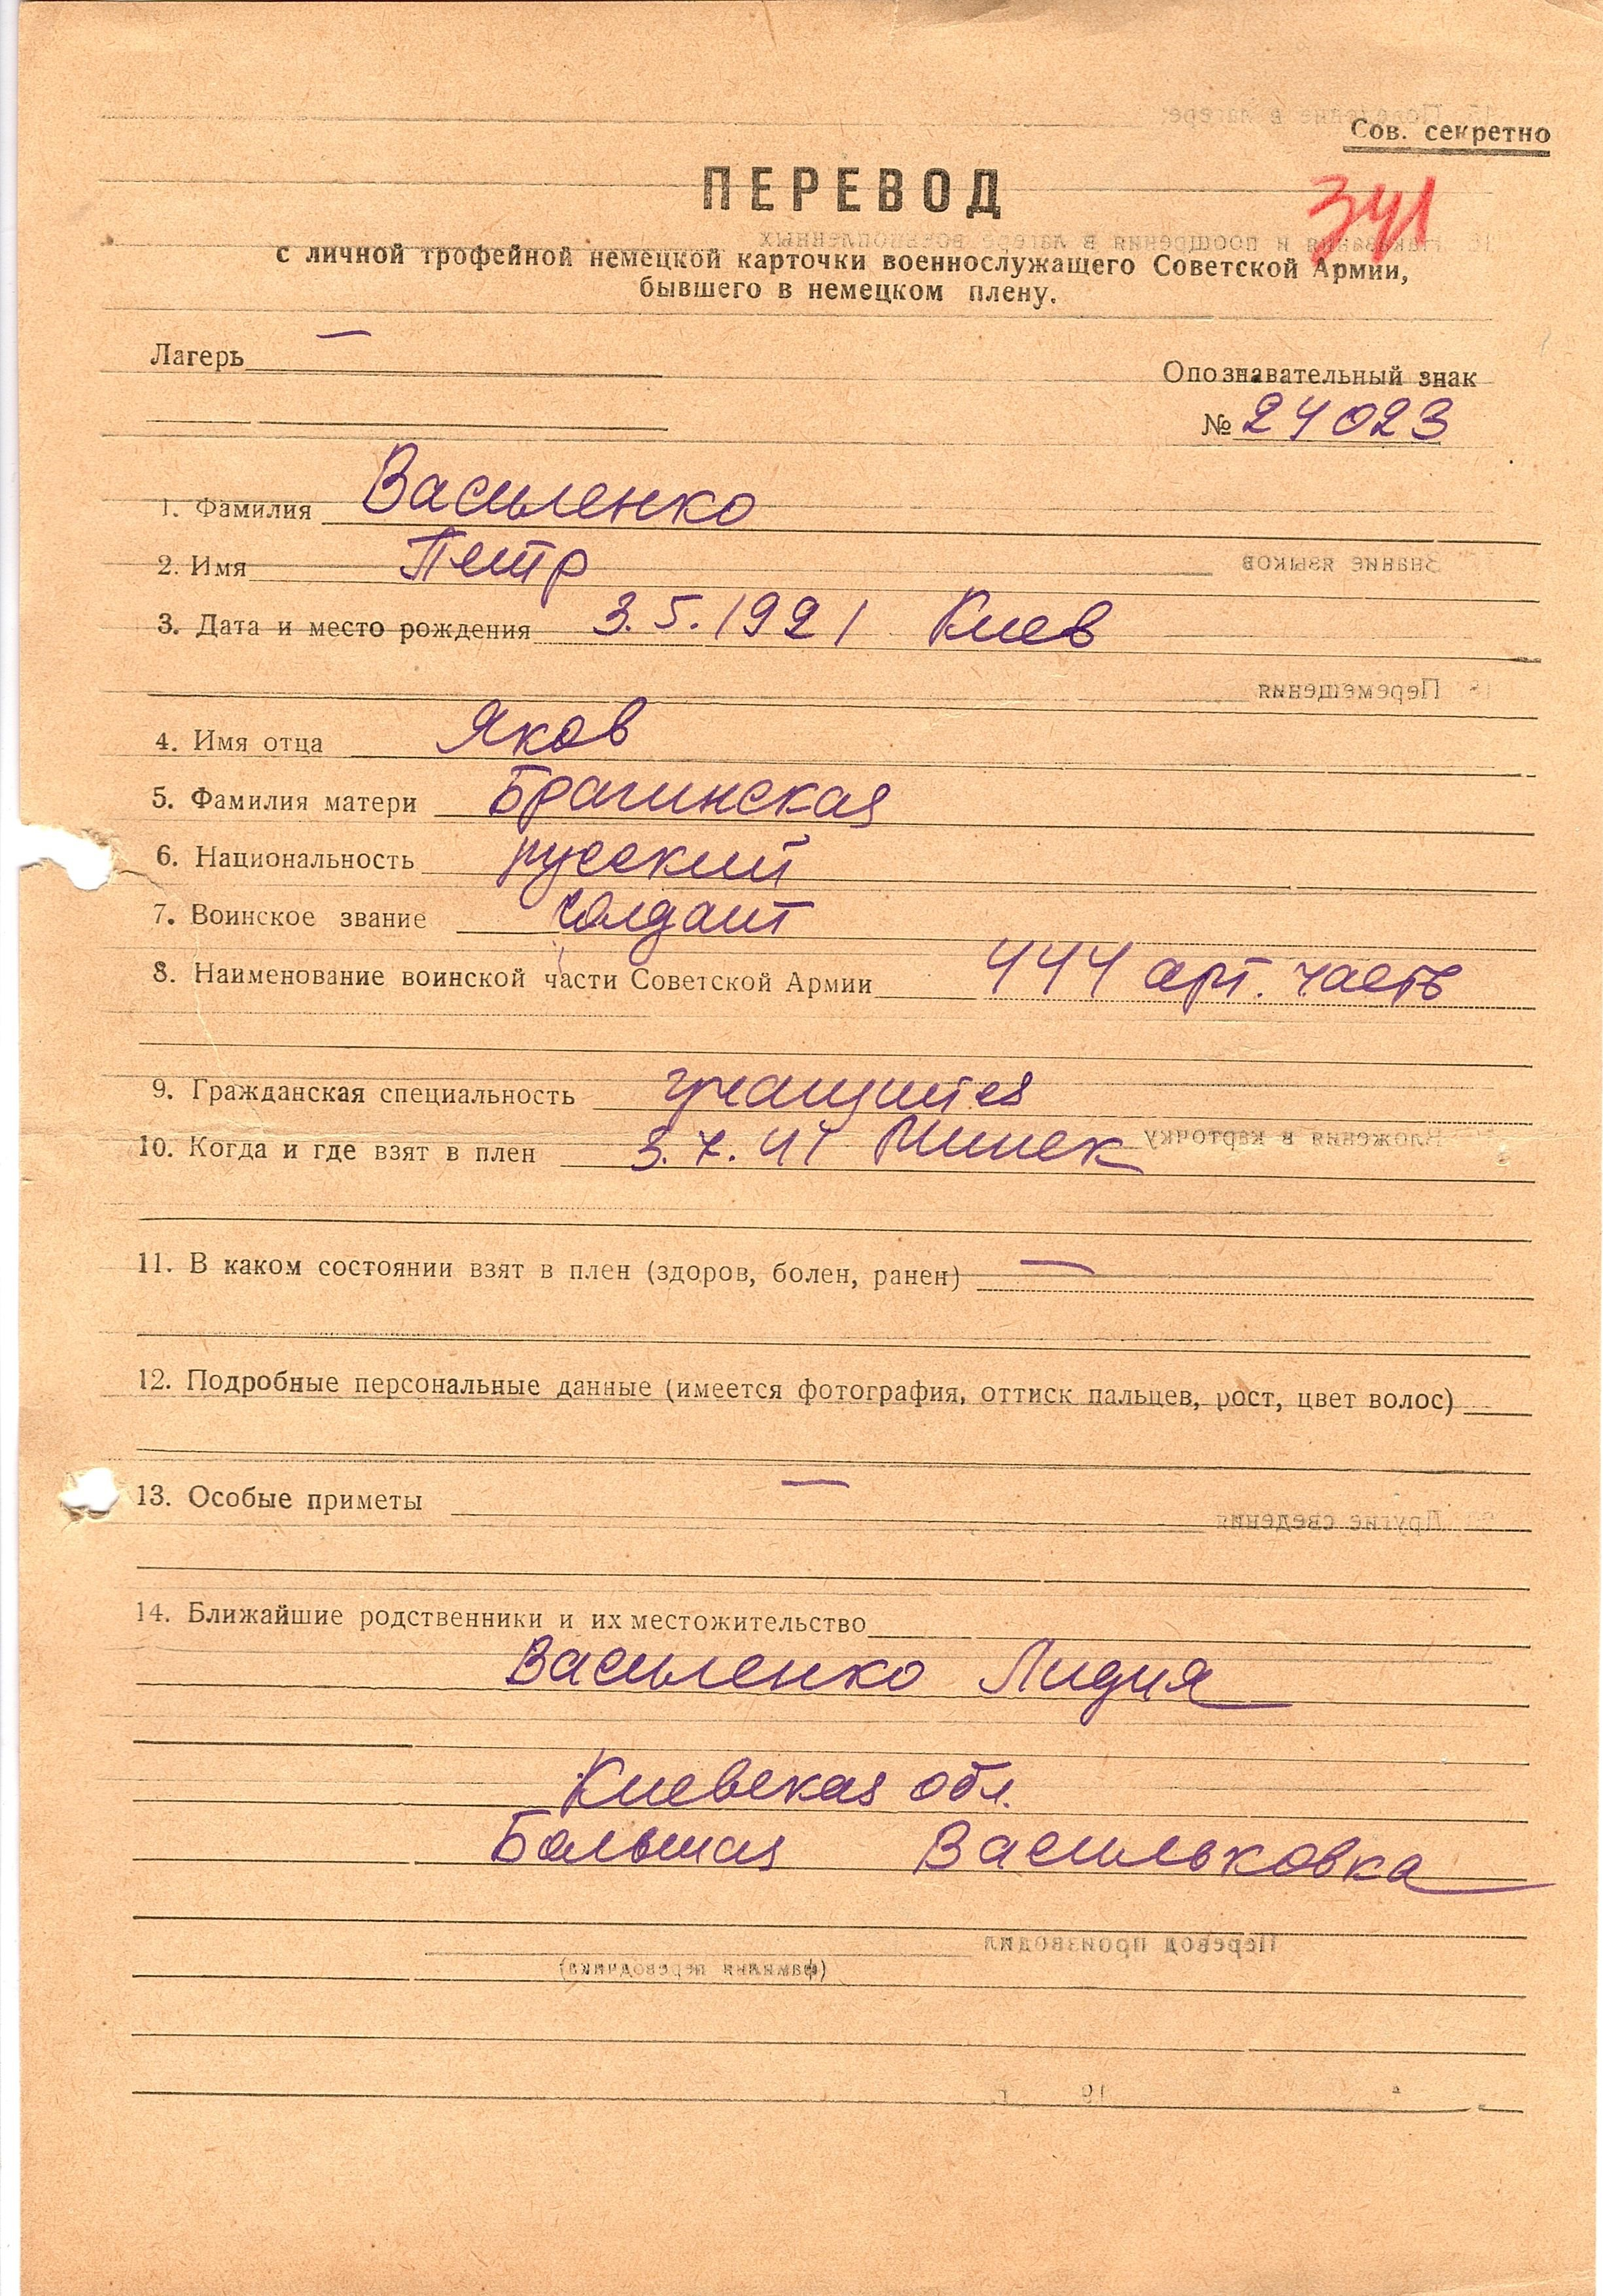 Сов. секретно
ПЕРЕВОД
341
с личной трофейной немецкой карточки военнослужащего Советской Армии,
бывшего в немецком плену.
Лагерь —
Опознавательный знак
№ 24023
1. Фамилия Василенко
2. Имя Петр
3. Дата и место рождения 3.5.1921 Киев
4. Имя отца Яков
5. Фамилия матери Брагинская
6. Национальность русский
7. Воинское звание солдат
8. Наименование воинской части Советской Армии 444 арт. часть
9. Гражданская специальность учащийся
10. Когда и где взят в плен 3.7.41 Минск
11. В каком состоянии взят в плен (здоров, болен, ранен) —
12. Подробные персональные данные (имеется фотография, оттиск пальцев, рост, цвет волос)
13. Особые приметы —
14. Ближайшие родственники и их местожительство
Василенко Лидия
Киевская обл.
Большая Васильковка